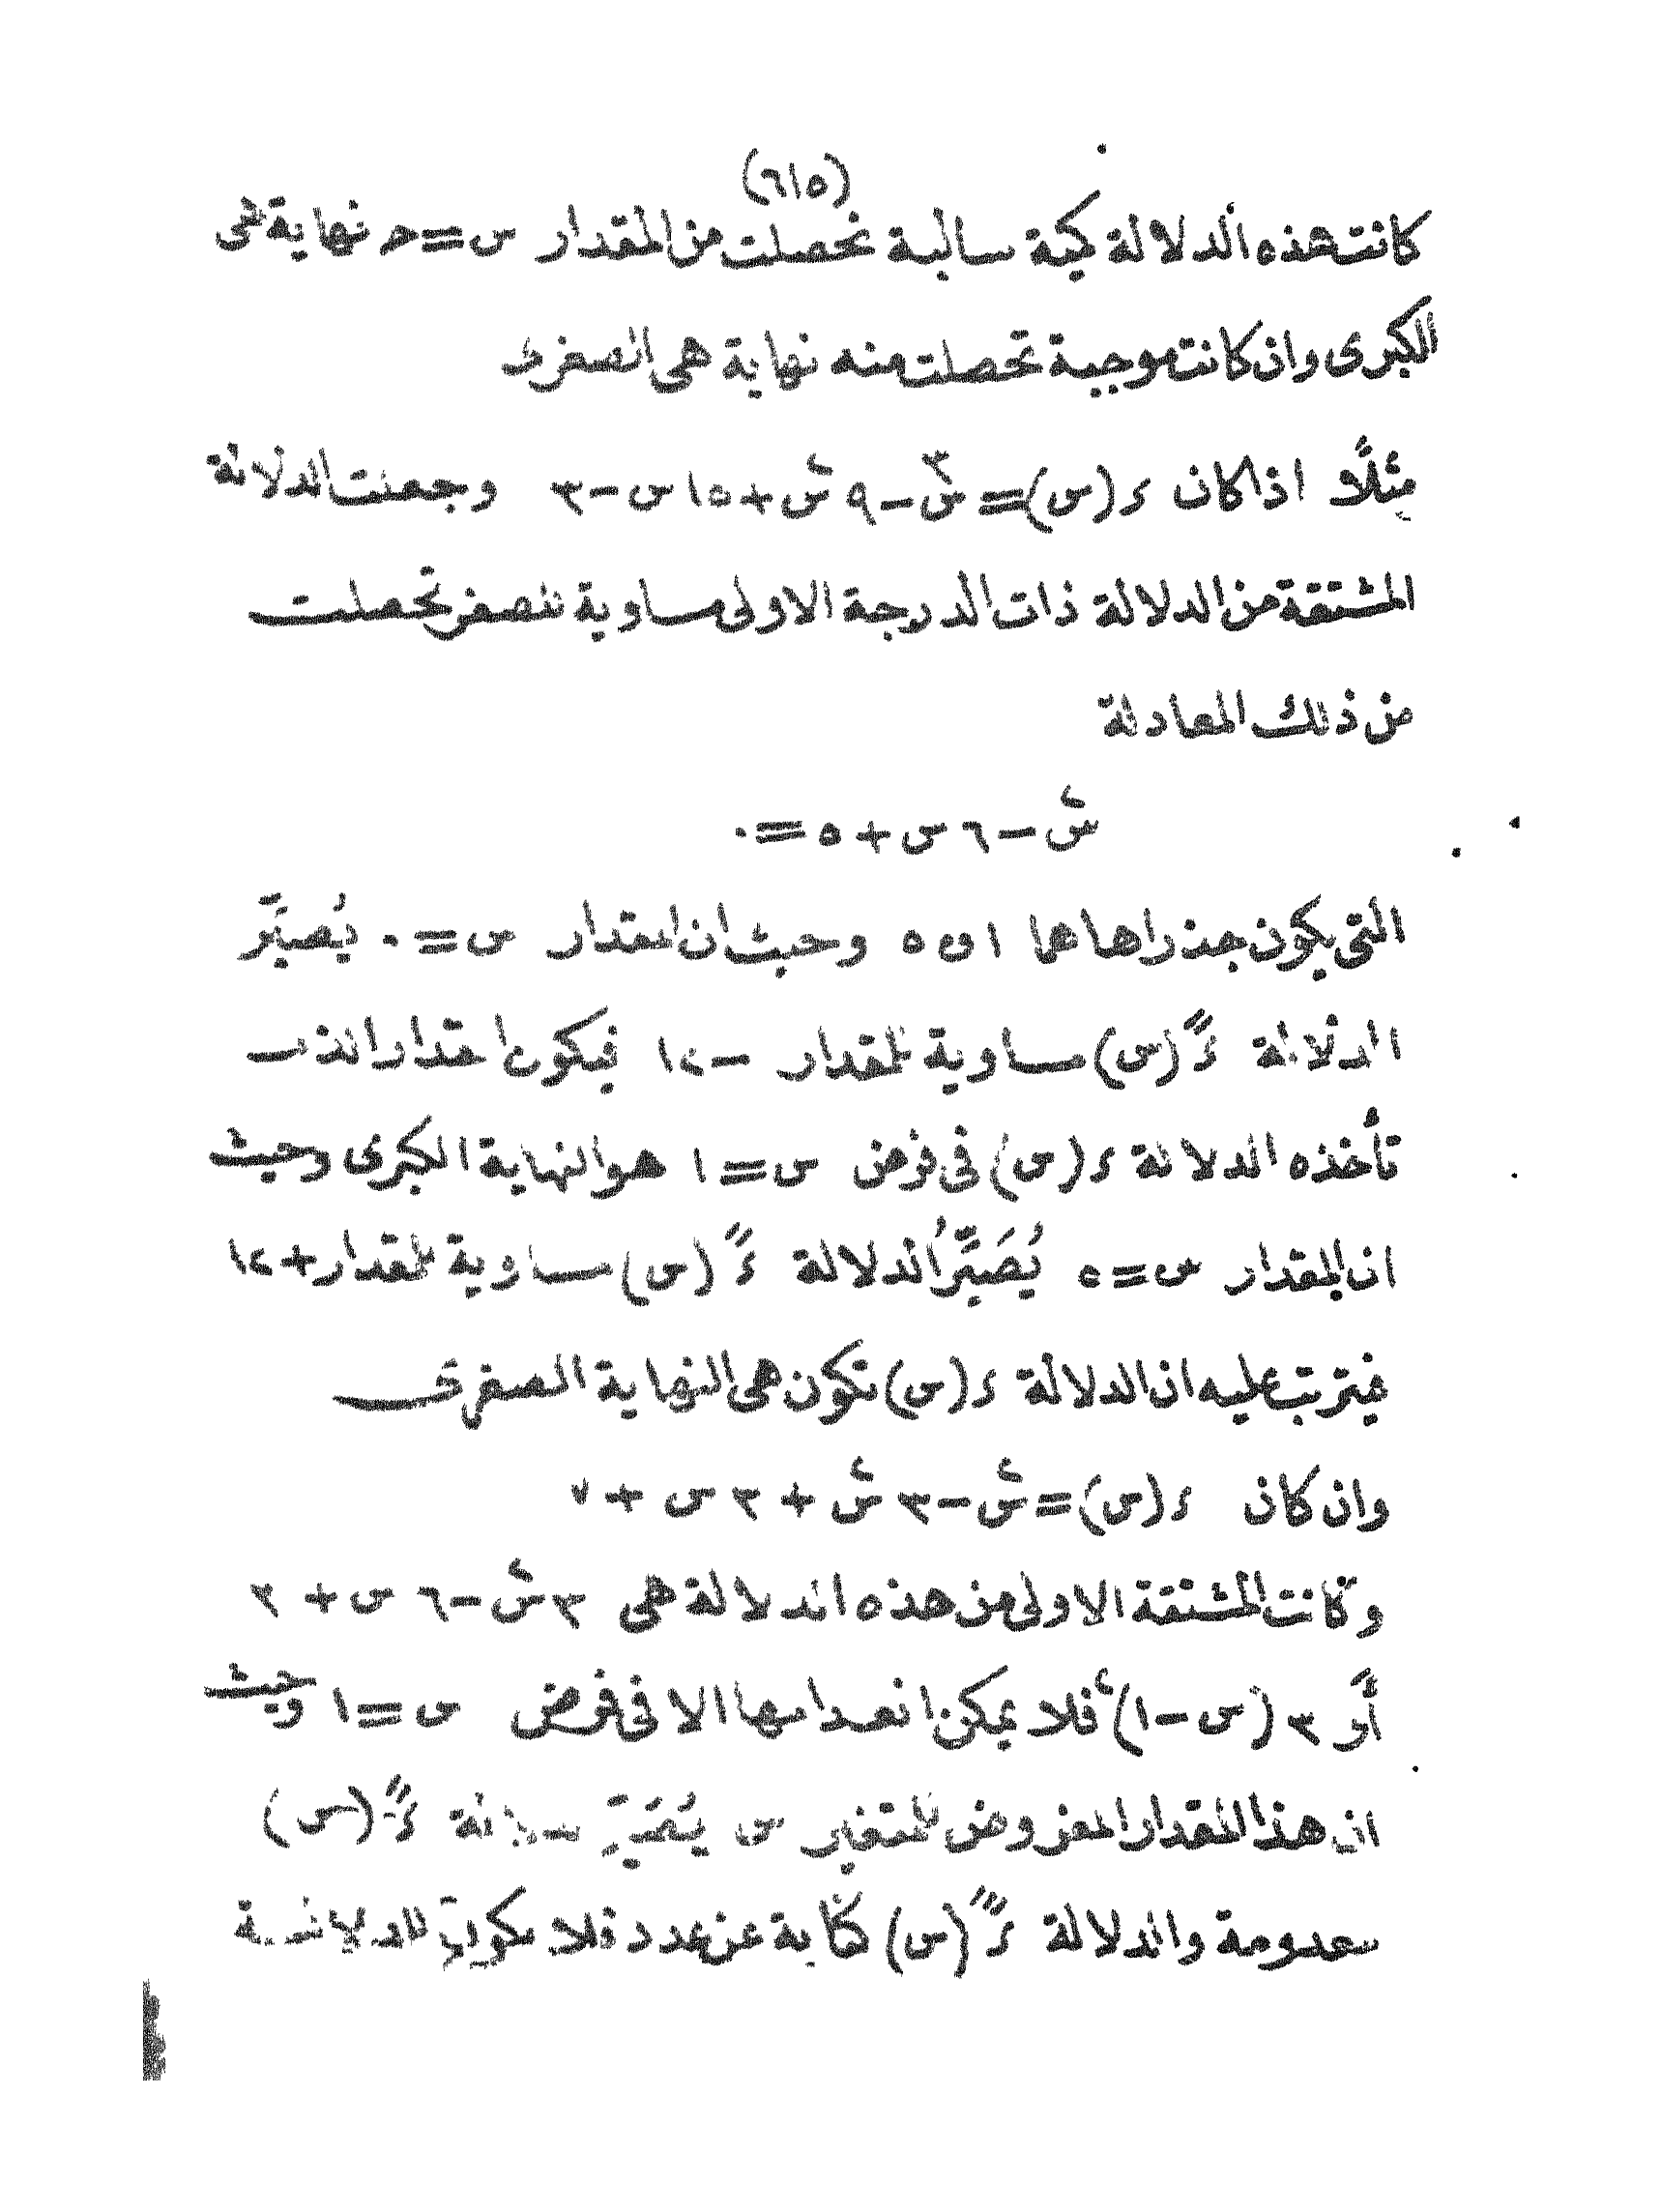 (٦١٥)
كانت هذه الدلالة كمية سالبة تحصلت من المقدار س = حـ نهاية هى
الكبرى وان كانت موجبة تحصلت منه نهاية هى الصغرى
مثلاً اذا كان ء (س) = س٣ - ٩ س٢ + ١٥ س - ٣ وجعلت الدلالة
المشتقة من الدلالة ذات الدرجة الاولى مساوية للصفر تحصلت
من ذلك المعادلة
س٢ - ٦ س + ٥ = ٠
التى يكون جذراها هما ١ و ٥ وحيث ان المقدار س = ٠ يُصيِّر
الدلالة ءً (س) مساوية للمقدار - ١٢ فيكون المقدار الذى
تأخذه الدلالة ء (س) فى فرض س = ١ هو النهاية الكبرى وحيث
ان المقدار س = ٥ يُصَيِّرُ الدلالة ءً (س) مساوية للمقدار + ١٢
فيترتب عليه ان الدلالة ء (س) تكون هى النهاية الصغرى
وان كان ء (س) = س٢ - ٣ س٢ + ٣ س + ٧
وكانت المشتقة الاولى من هذه الدلالة هى ٣ س٢ - ٦ س + ٣
أر ٣ (س - ١)٢ فلا يمكن انعدامها الا فى فرض س = ١ وحيث
ان هذا المقدار المفروض للمتغير س يُصَيِّر الدلالة ءً (س)
معدومة والدلالة ءً (س) كناية عن عدد فلا يكون للدلالة